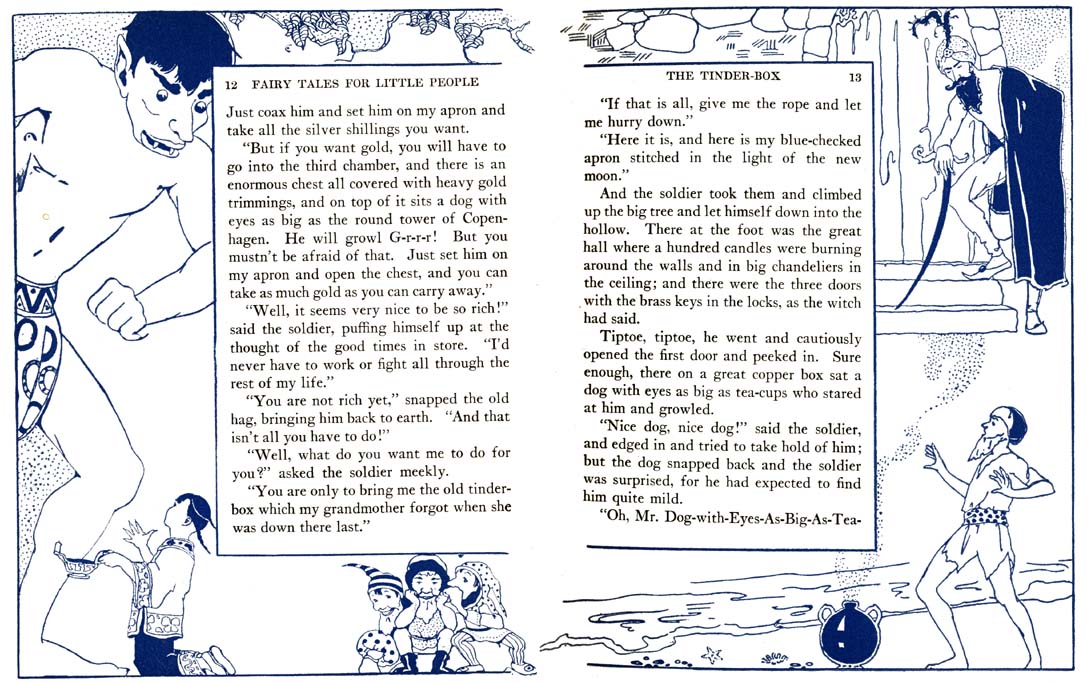 12 FAIRY TALES FOR LITTLE PEOPLE
Just coax him and set him on my apron and
take all the silver shillings you want.
“But if you want gold, you will have to
go into the third chamber, and there is an
enormous chest all covered with heavy gold
trimmings, and on top of it sits a dog with
eyes as big as the round tower of Copen-
hagen. He will growl G-r-r-r! But you
mustn’t be afraid of that. Just set him on
my apron and open the chest, and you can
take as much gold as you can carry away.”
“Well, it seems very nice to be so rich!”
said the soldier, puffing himself up at the
thought of the good times in store. “I’d
never have to work or fight all through the
rest of my life.”
“You are not rich yet,” snapped the old
hag, bringing him back to earth. “And that
isn’t all you have to do!”
“Well, what do you want me to do for
you?” asked the soldier meekly.
“You are only to bring me the old tinder-
box which my grandmother forgot when she
was down there last.”
THE TINDER-BOX 13
“If that is all, give me the rope and let
me hurry down.”
“Here it is, and here is my blue-checked
apron stitched in the light of the new
moon.”
And the soldier took them and climbed
up the big tree and let himself down into the
hollow. There at the foot was the great
hall where a hundred candles were burning
around the walls and in big chandeliers in
the ceiling; and there were the three doors
with the brass keys in the locks, as the witch
had said.
Tiptoe, tiptoe, he went and cautiously
opened the first door and peeked in. Sure
enough, there on a great copper box sat a
dog with eyes as big as tea-cups who stared
at him and growled.
“Nice dog, nice dog!” said the soldier,
and edged in and tried to take hold of him;
but the dog snapped back and the soldier
was surprised, for he had expected to find
him quite mild.
“Oh, Mr. Dog-with-Eyes-As-Big-As-Tea-